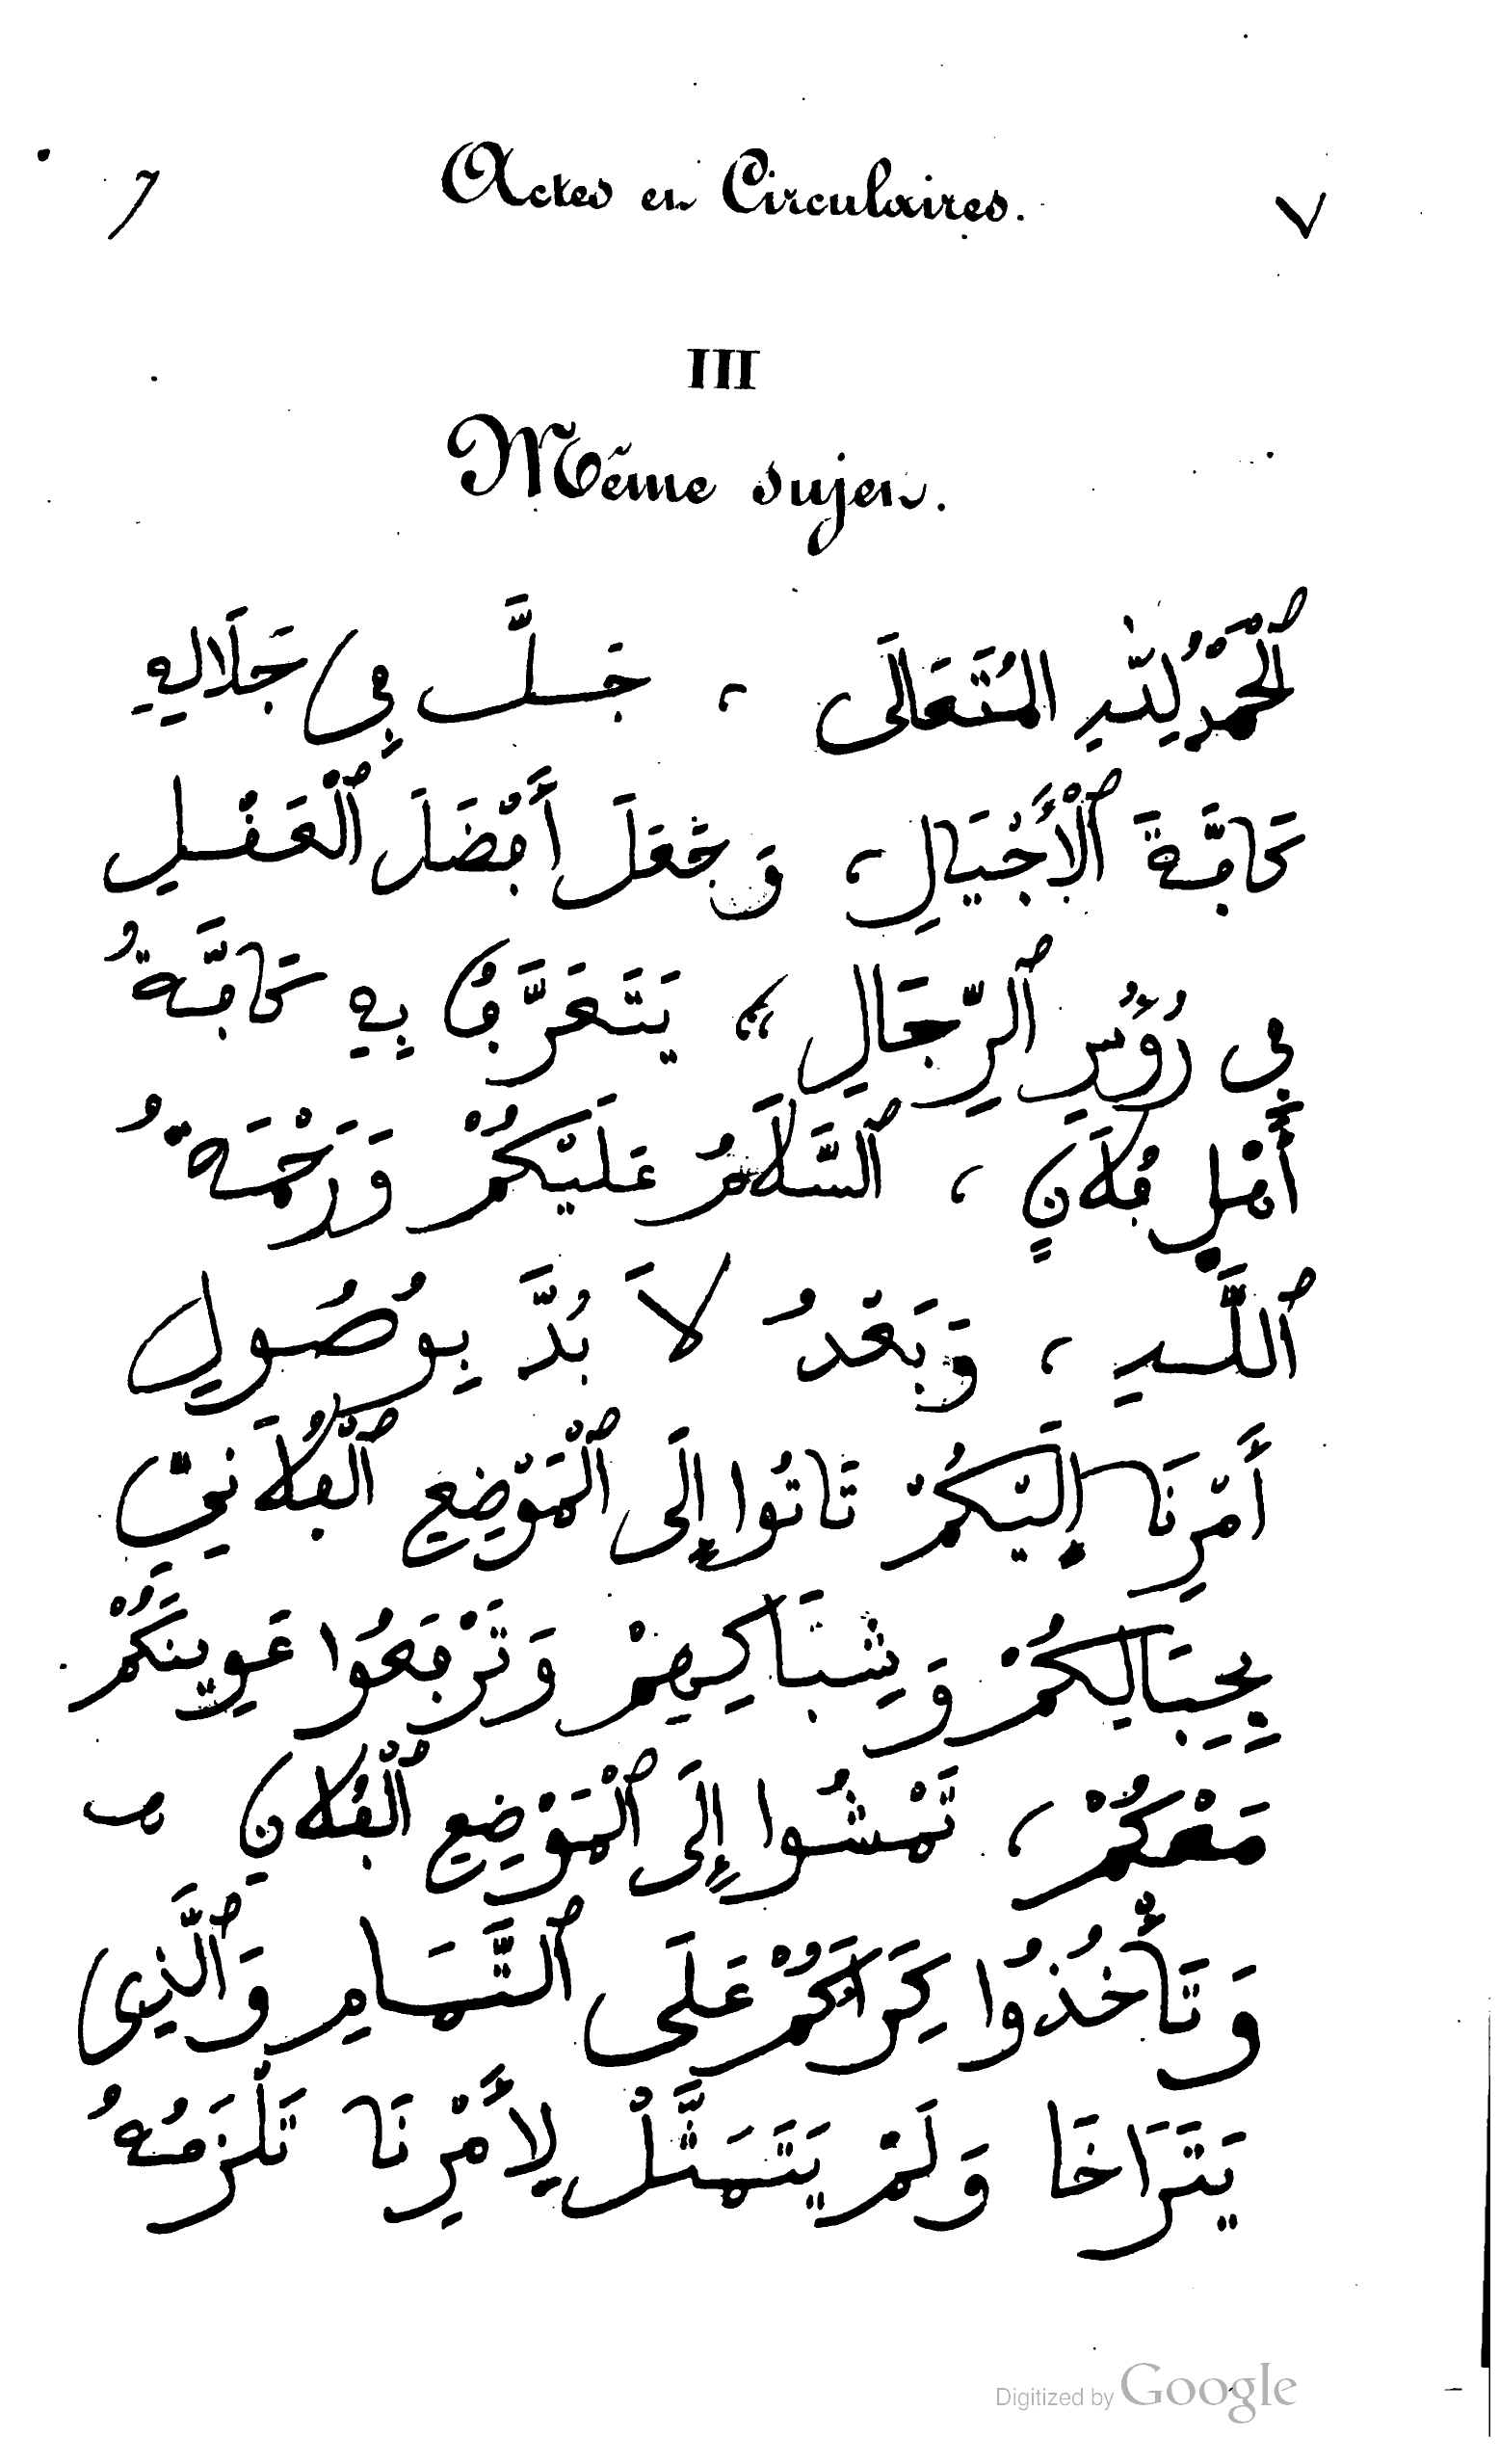 7 Actes et Circulaires. ٧
III
Même sujet.
ٱلْحَمْدُ لِلّٰهِ المُتَعَالَى ، جَلَّ فِي جَلَالِهِ
كَافَّةَ ٱلْأَجْيَالِ ، وَجَعَلَ أَفْضَلَ ٱلْعَقْلِ
فِي رُؤُسِ ٱلرِّجَالِ ، يَتَعَرَّفُ بِهِ كَافَّةُ
أَهْلِ فُلَانٍ ، ٱلسَّلَامُ عَلَيْكُمْ وَرَحْمَةُ
ٱللَّهِ ، وَبَعْدُ لَا بُدَّ بِوُصُولِ
أَمْرِنَا إِلَيْكُمْ تَاتُوا إِلَى ٱلْمَوْضِعِ ٱلْفُلَانِيِّ
بِحِبَالِكُمْ وَشِبَاكِهِمْ وَتَرْفَعُوا عَوِينَكُمْ
مَعَكُمْ ، تَمْشُوا إِلَى ٱلْمَوْضِعِ ٱلْفُلَانِ
وَتَأْخُذُوا كِرَاكُمْ عَلَى ٱلتَّمَامِ وَٱلَّذِي
يَتَرَاخَا وَلَمْ يَتَمَثَّلْ لِأَمْرِنَا تَلْزَمُهُ
Digitized by Google